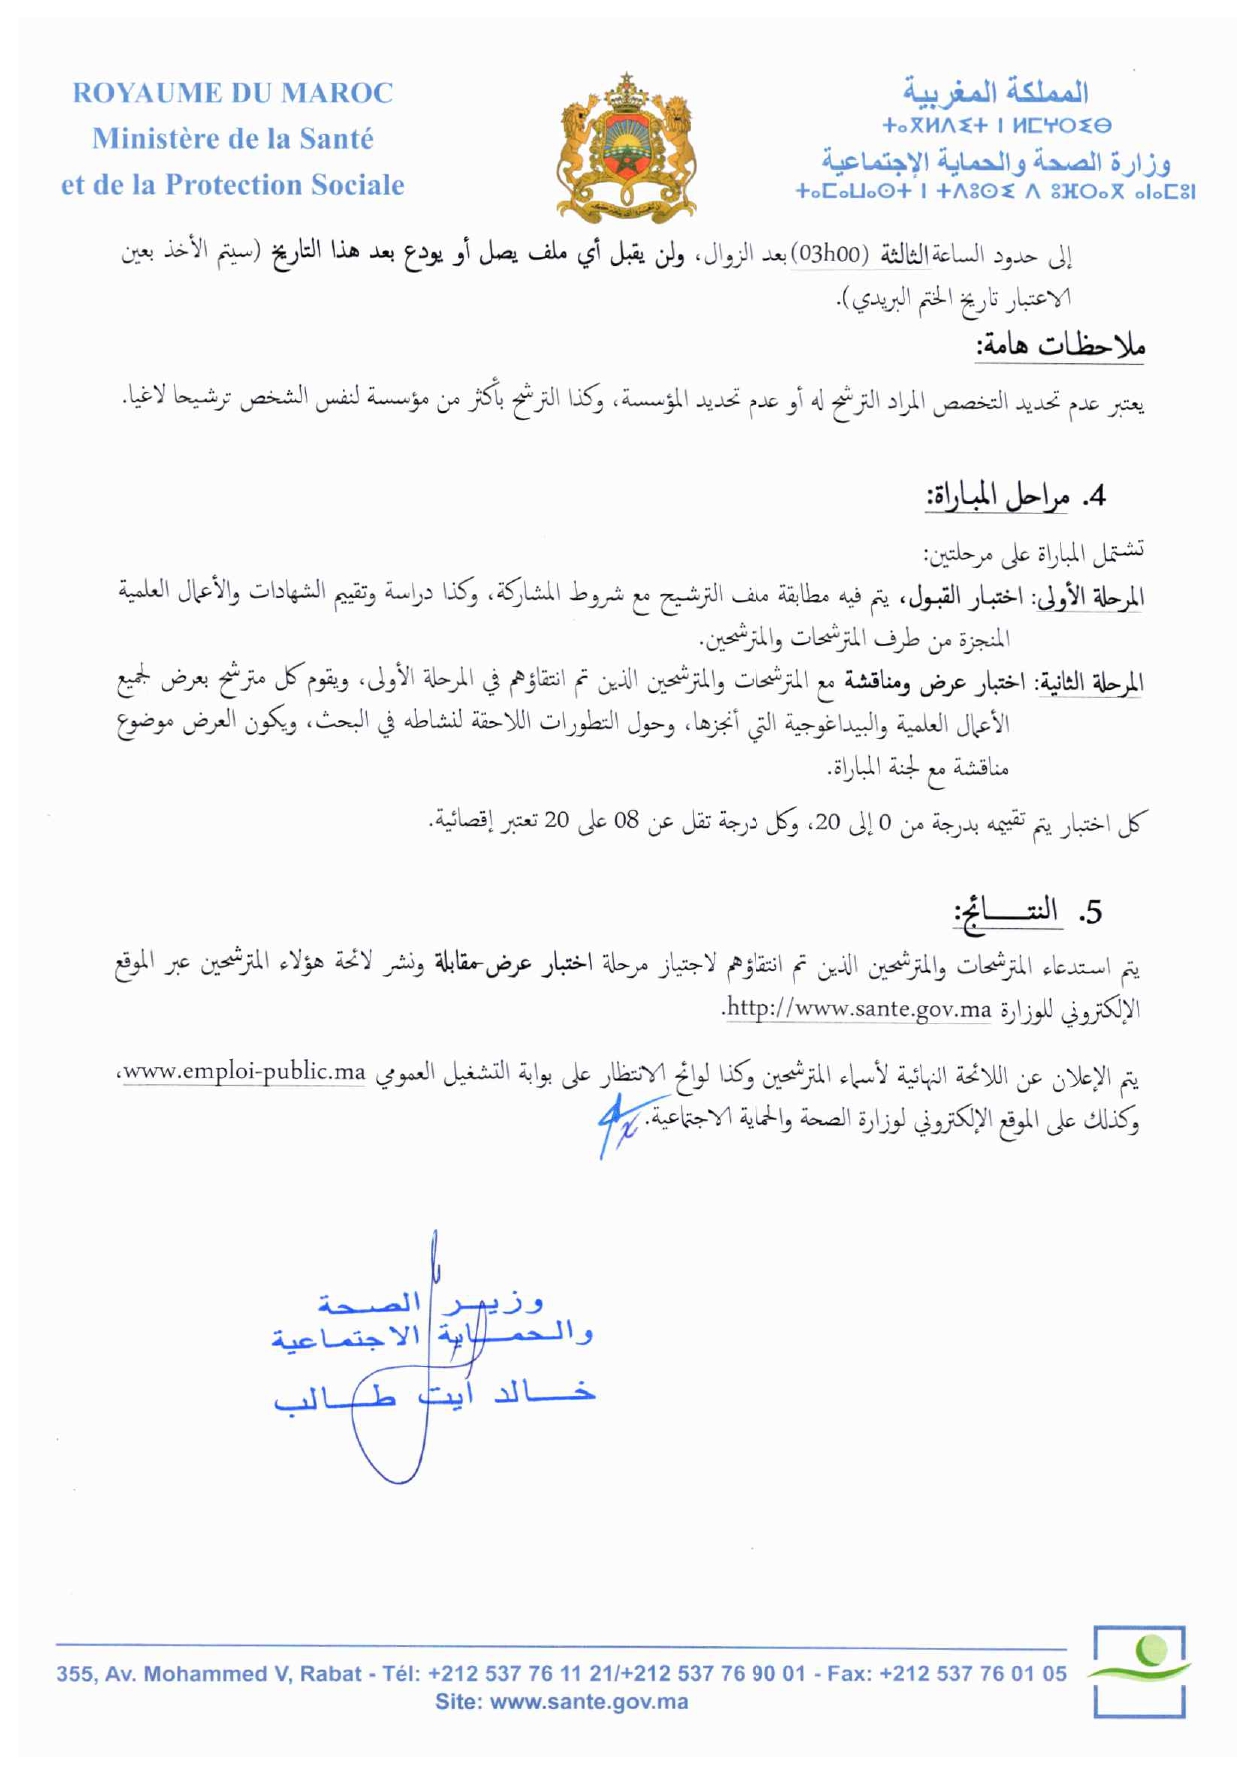 ROYAUME DU MAROC
Ministère de la Santé
et de la Protection Sociale
المملكة المغربية
ⵜⴰⴳⵍⴷⵉⵜ ⵏ ⵍⵎⵖⵔⵉⴱ
وزارة الصحة والحماية الإجتماعية
ⵜⴰⵎⴰⵡⴰⵙⵜ ⵏ ⵜⴷⵓⵙⵉ ⴷ ⵓⴼⵔⴰⴳ ⴰⵏⴰⵎⵓⵏ
إلى حدود الساعة الثالثة (03h00) بعد الزوال، ولن يقبل أي ملف يصل أو يودع بعد هذا التاريخ (سيتم الأخذ بعين
الاعتبار تاريخ الختم البريدي).
ملاحظات هامة:
يعتبر عدم تحديد التخصص المراد الترشح له أو عدم تحديد المؤسسة، وكذا الترشح بأكثر من مؤسسة لنفس الشخص ترشيحا لاغيا.
4. مراحل المباراة:
تشتمل المباراة على مرحلتين:
المرحلة الأولى: اختبار القبول، يتم فيه مطابقة ملف الترشيح مع شروط المشاركة، وكذا دراسة وتقييم الشهادات والأعمال العلمية
المنجزة من طرف المترشحات والمترشحين.
المرحلة الثانية: اختبار عرض ومناقشة مع المترشحات والمترشحين الذين تم انتقاؤهم في المرحلة الأولى، ويقوم كل مترشح بعرض لجميع
الأعمال العلمية والبيداغوجية التي أنجزها، وحول التطورات اللاحقة لنشاطه في البحث، ويكون العرض موضوع
مناقشة مع لجنة المباراة.
كل اختبار يتم تقييمه بدرجة من 0 إلى 20، وكل درجة تقل عن 08 على 20 تعتبر إقصائية.
5. النتـــائج:
يتم استدعاء المترشحات والمترشحين الذين تم انتقاؤهم لاجتياز مرحلة اختبار عرض-مقابلة ونشر لائحة هؤلاء المترشحين عبر الموقع
الإلكتروني للوزارة http://www.sante.gov.ma.
يتم الإعلان عن اللائحة النهائية لأسماء المترشحين وكذا لوائح الانتظار على بوابة التشغيل العمومي www.emploi-public.ma،
وكذلك على الموقع الإلكتروني لوزارة الصحة والحماية الاجتماعية.
وزيــر الصحة
والحمــاية الاجتماعية
خــالد آيت طــالب
355, Av. Mohammed V, Rabat - Tél: +212 537 76 11 21/+212 537 76 90 01 - Fax: +212 537 76 01 05
Site: www.sante.gov.ma